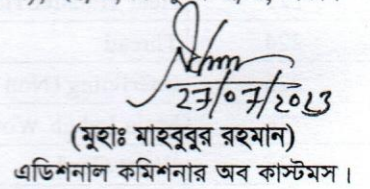 27/07/2023
(মুহাঃ মাহবুবুর রহমান)
এডিশনাল কমিশনার অব কাস্টমস।